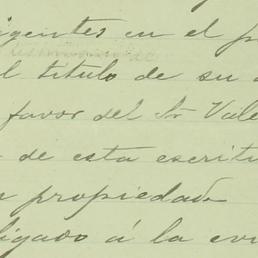 igentes en el p
l título de su
favor del Sr Vale
de esta escritu
propiedad
ligado á la evi